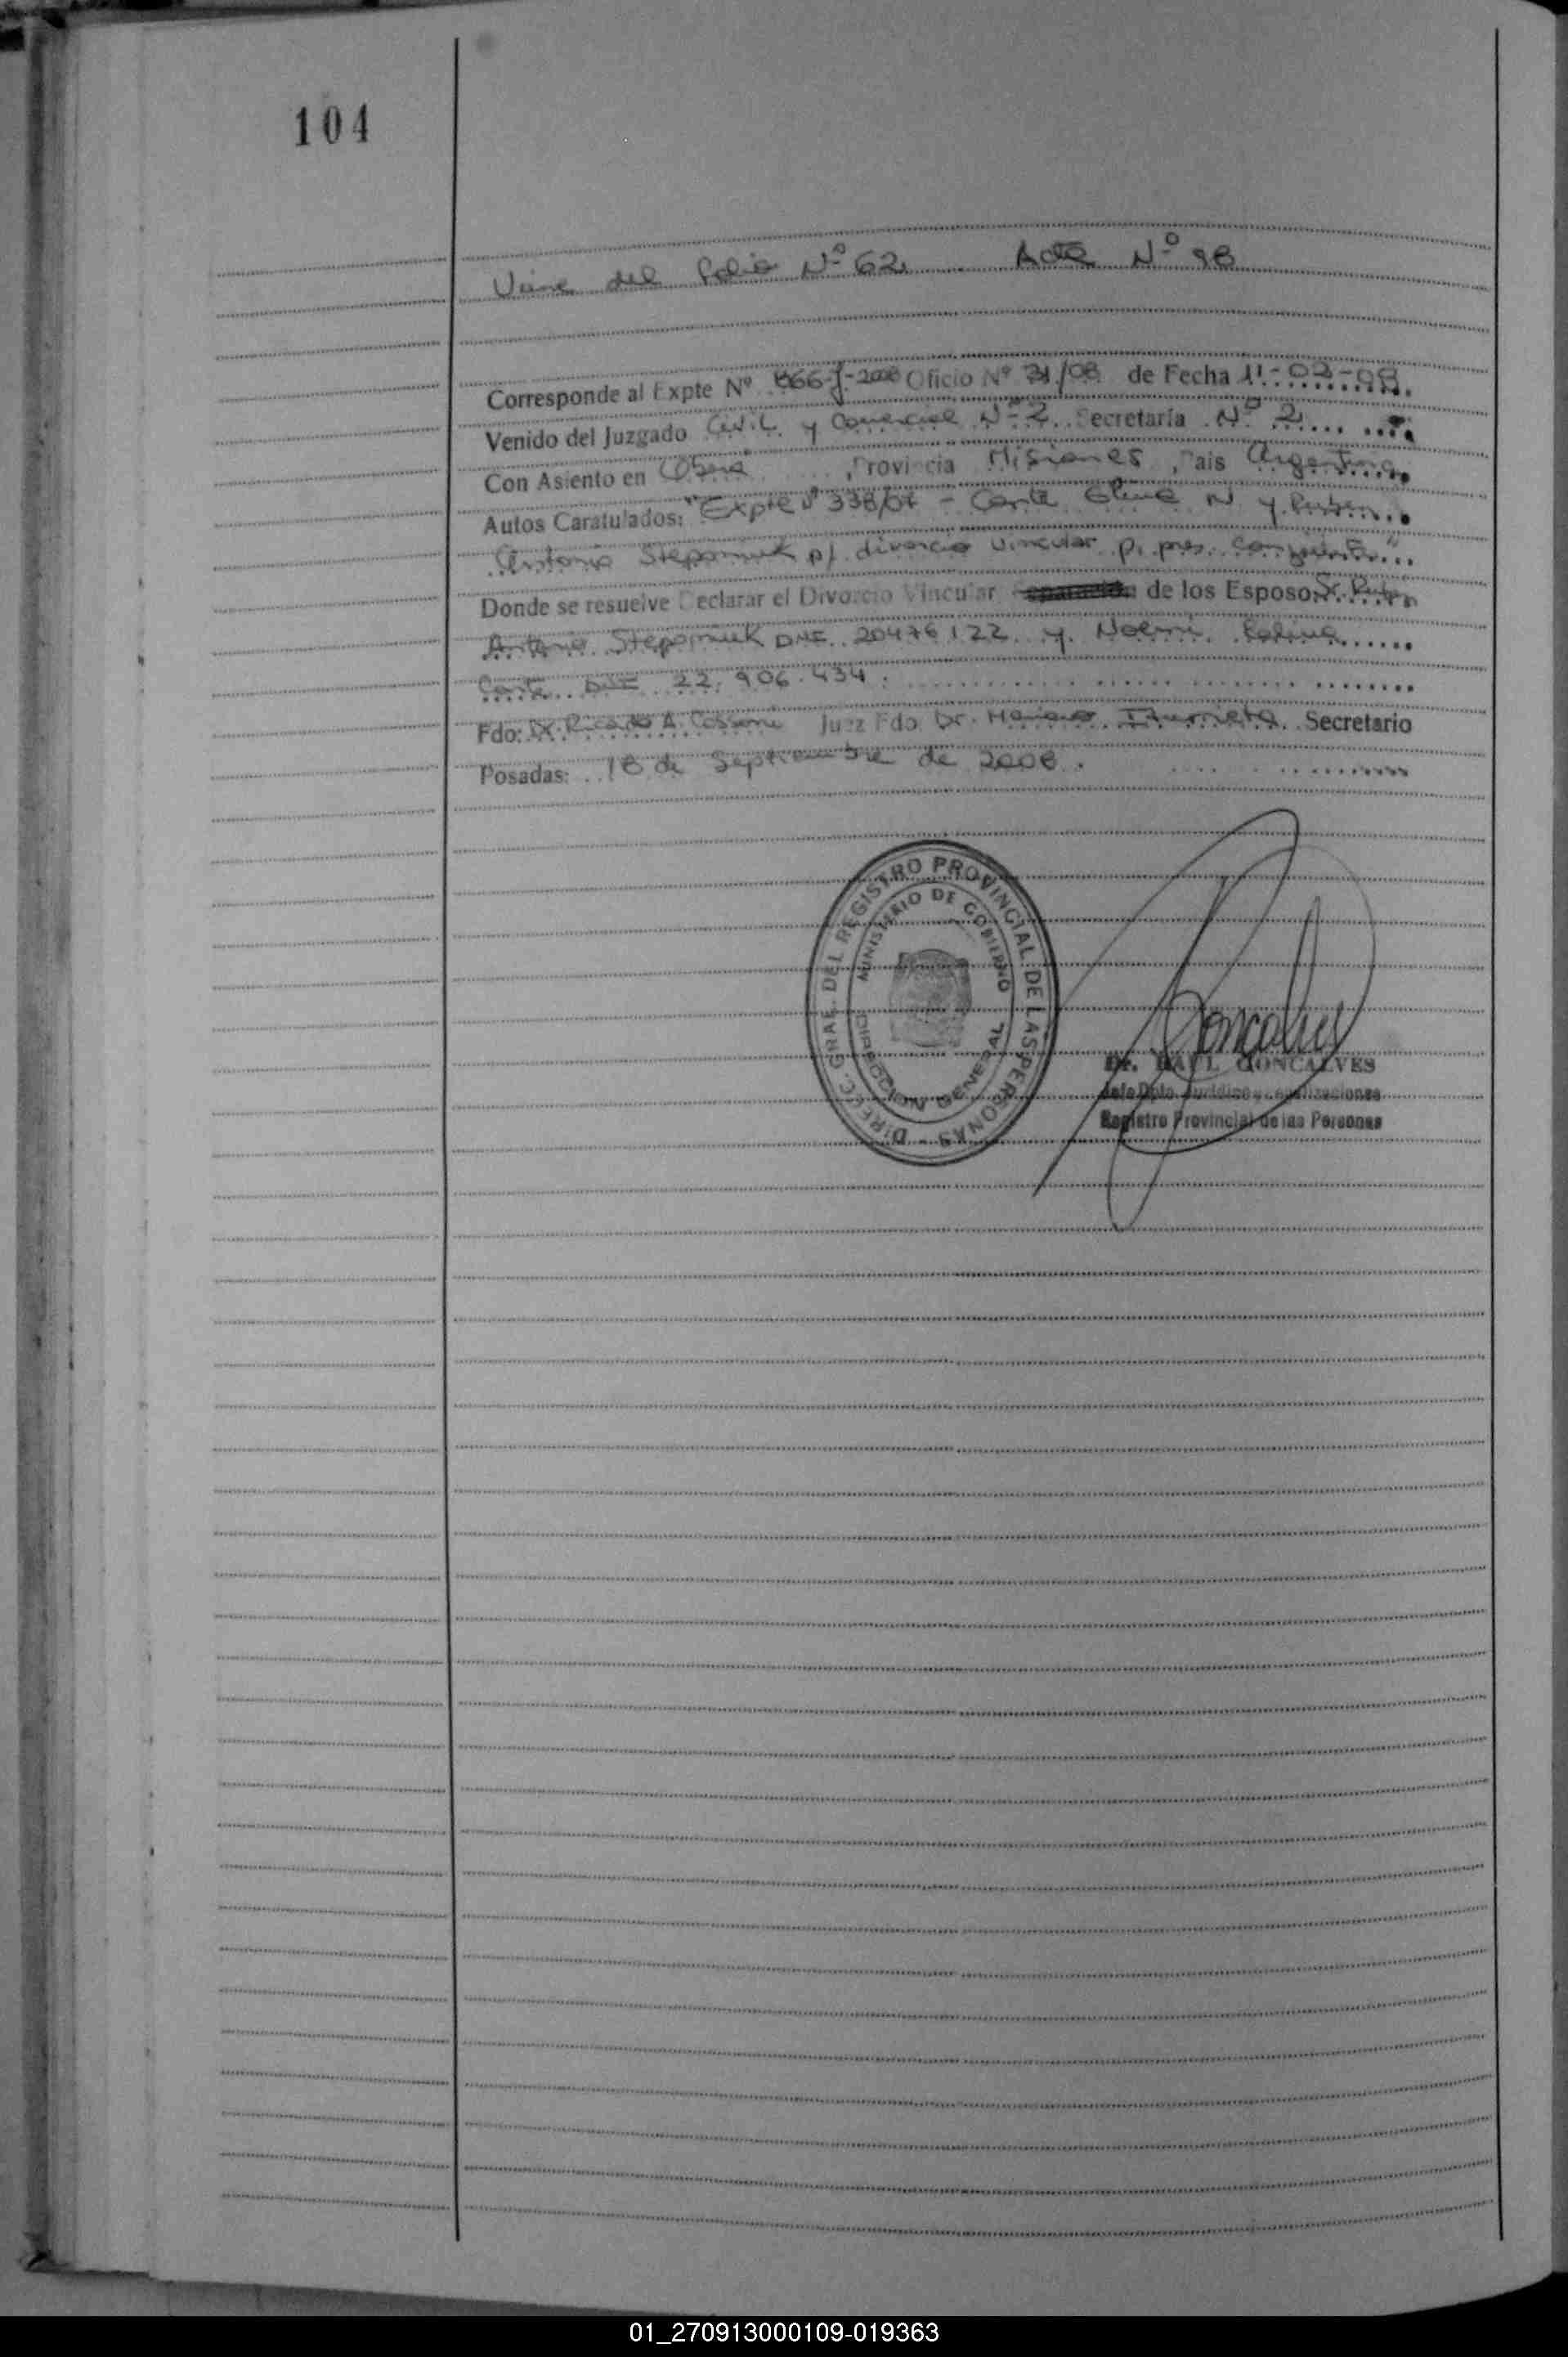 104
Viene del folio Nº 62. Acta Nº 98
Corresponde al Expte Nº 866-J-2008 Oficio Nº 31/08 de Fecha 11-02-08
Venido del Juzgado Civil y Comercial Nº 2 Secretaría Nº 2
Con Asiento en Oberá Provincia Misiones, Pais Argentina
Autos Caratulados: "Expte Nº 338/07 - N y Ruben
Antonio Steponiuk p/ divorcio vincular p. pres. conjunta"
Donde se resuelve Declarar el Divorcio Vincular de los Esposos Sr. Rubén
Antonio Steponiuk DNI 20476122 y Noemi
DNI 22.906.434.
Fdo: Dr. Ricardo A. Juez Fdo Dr. Mariano Secretario
Posadas: 18 de Septiembre de 2008.
DIRECC. GRAL. DEL REGISTRO PROVINCIAL DE LAS PERSONAS -
MINISTERIO DE GOBIERNO
DIRECCION GENERAL
Goncalves
Dr. RAUL GONCALVES
Jefe Dpto. Jurídico y Legalizaciones
Registro Provincial de las Personas
01_270913000109-019363